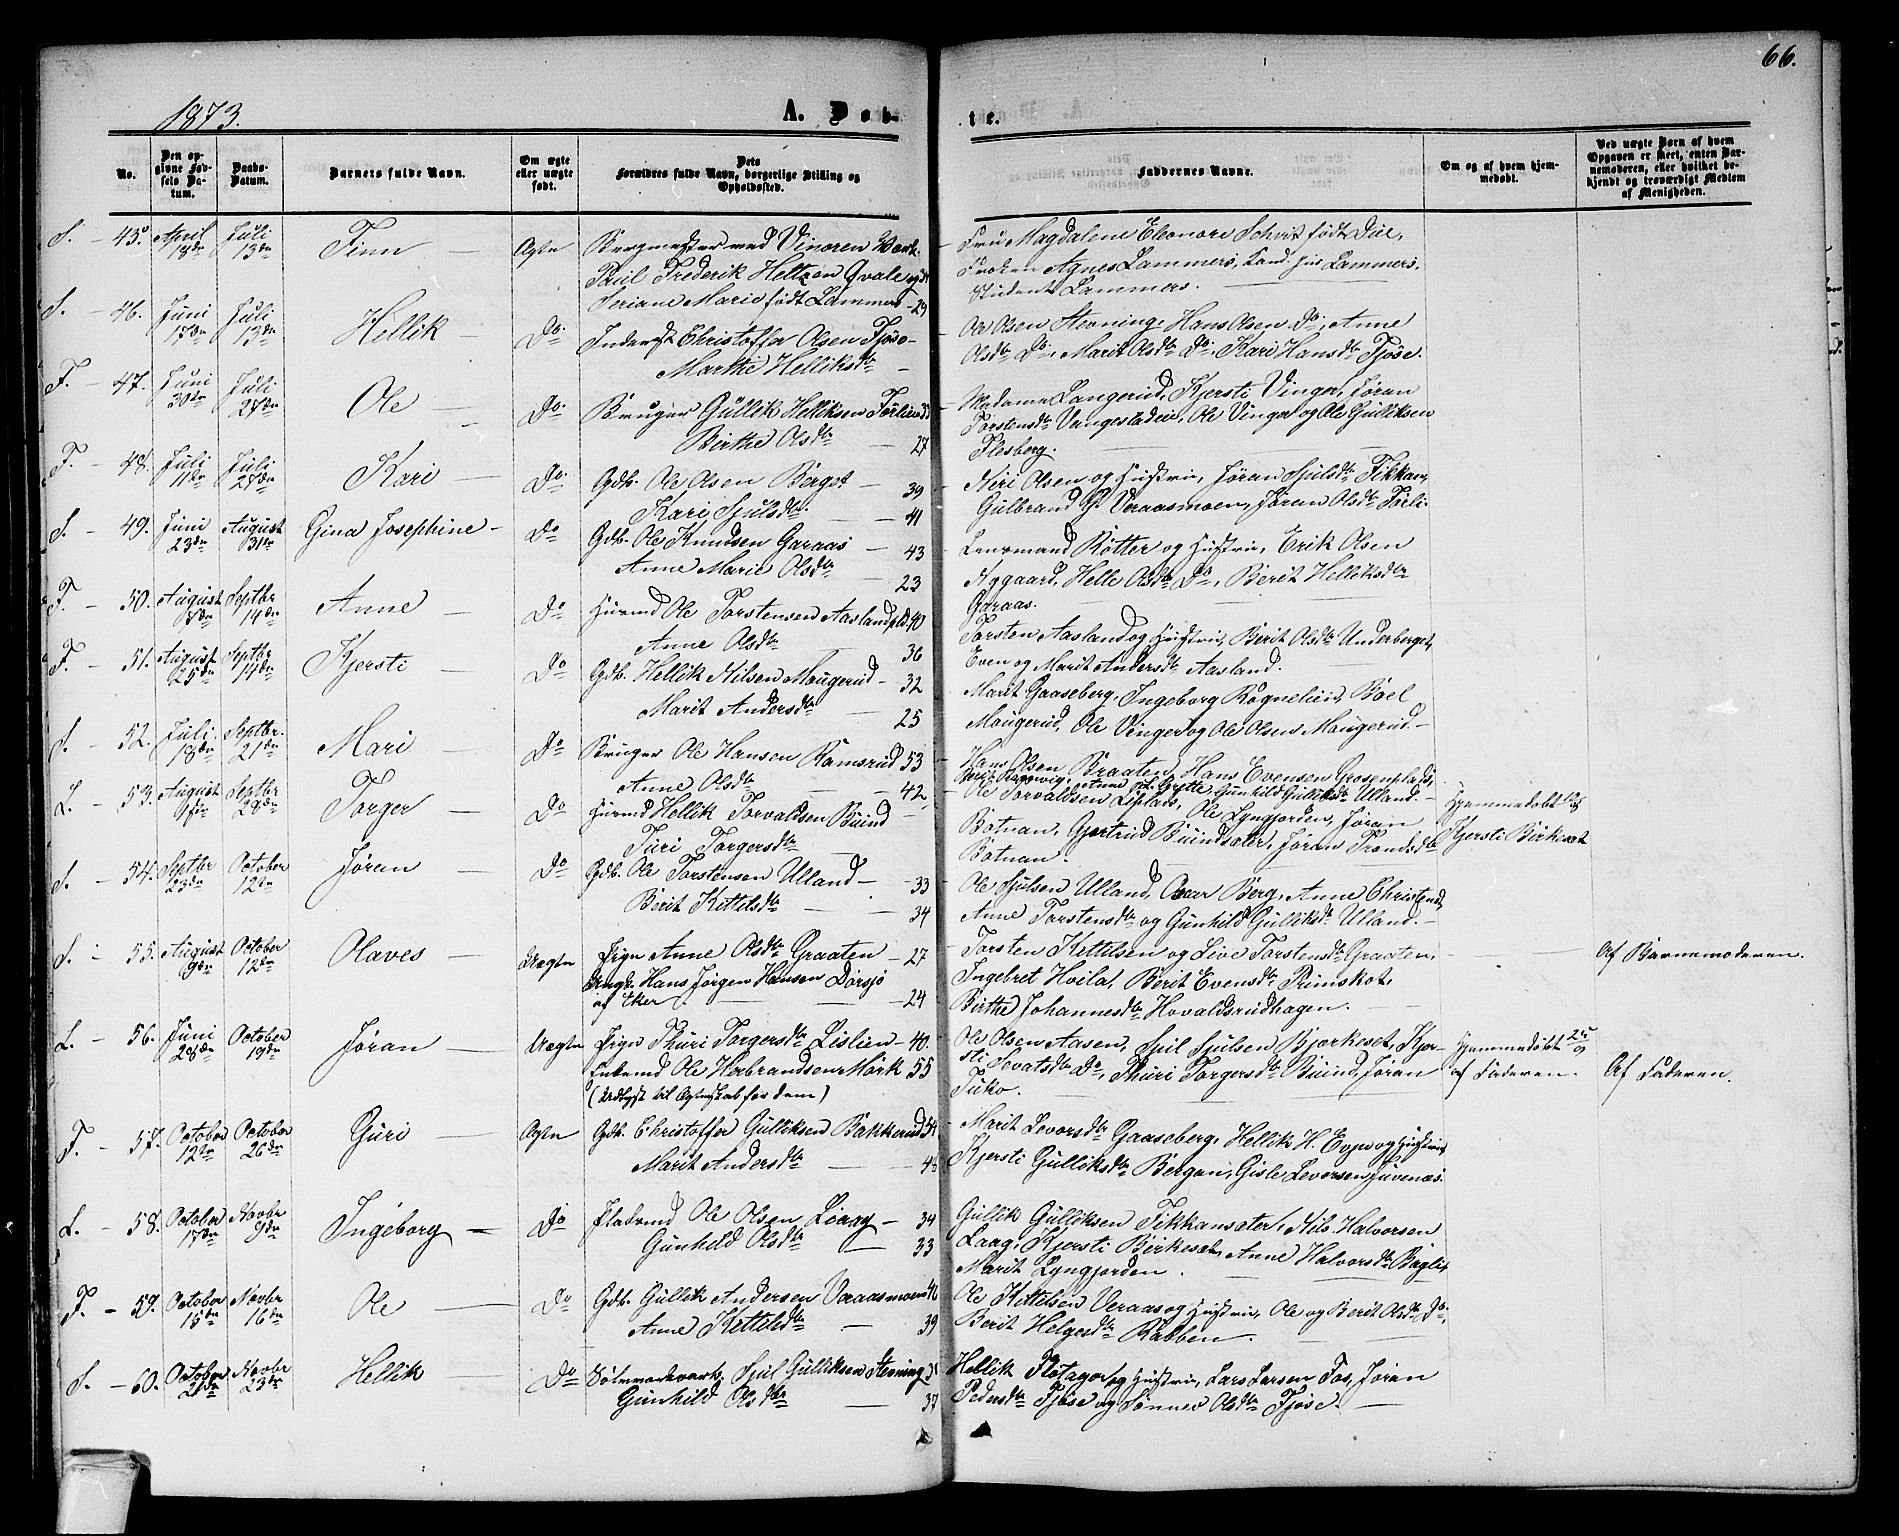 66.
1873.
A. Døb-
te.
No.
Den op-
givne Fød-
sels Da-
tum.
Daabs-
Datum.
Barnets fulde Navn.
Om ægte
eller uægte
født.
Dets
Forældres fulde Navn, borgerlige Stilling og
Opholdssted.
Faddernes Navne.
Om og af hvem hjem-
medøbt.
Ved uægte Børn af hvem
Opgaven er skeet, enten Bar-
nemoderen, eller hvilket be-
kjendt og troværdigt Medlem
af Menigheden.
S. - 45. April 18de Juli 13de Finn Ægte Bergmester ved Vinoren Værk
Paul Frederik Heltzen Qvale og
Seriane Marie født Lammers - 29
Fru Magdalene Eleonore født Due,
Frøken Agnes Lammers, Lammers,
Student Lammers.
S. - 46. Juni 17de Juli 13de Hellik Do. Inderst Christoffer Olsen Fjøse
Marthe Helliksdtr
Ole Olsen Stevning, Hans Olsen Do., Anne
Olsdtr Do., Marit Olsdtr Do., Kari Hansdtr Fjøse.
F. - 47. Juni 30te Juli 27de Ole Do. Bruger Gullik Helliksen Førlien 33
Birthe Olsdtr 27
Madame Langerud, Kjersti Vinger, Jøran
Torstensdtr Vangestadeie, Ole Vinger og Ole Gulliksen
Flesberg.
F. - 48. Juli 11te Juli 27de Kari Do. Gdb. Ole Olsen Berget 39
Kari Sjulsdtr. 41
Niri Olsen og Hustru, Jøran Sjulsdtr Fikkan,
Gulbrand G. Veraasmoen, Jøran Olsdtr Førli.
S. - 49. Juni 23de August 31te Gina Josephine Do Gdb. Ole Knudsen Garaas 43
Anne Marie Olsdtr 23
Lensmand Rotter og Hustru, Erik Olsen
Nygaard, Helle Olsdtr Do, Berit Helliksdtr
Garaas.
F. - 50. August Septbr 14de Anne Do Huusmd Ole Torstensen Aaslandplds 40
Anne Olsdtr 36
Torsten Aasland og Hustru, Berit Olsdtr Underberget,
Even og Marit Andersdtr Aasland.
F. - 51. August 25de Septbr Kjersti Do Gdb. Hellik Nilsen Maugerud 32
Marit Andersdtr 25
Marit Gaaseberg, Ingeborg Rognelien, Boel
Maugerud, Ole Vinger og Ole Olsen Maugerud.
S. - 52. Juli 18de Septbr. 21de Mari Do Bruger Ole Hansen Ramsrud 53
Anne Olsdtr 42
Hans Olsen Braaten, Hans Evensen Grosenplads,
Anne Gunhild Gulliksdtr Ulland.
L. - 53. August 9de Septbr 28de Torger Do Huusmd Hellik Torvaldsen Buind
Turi Torgersdtr
Ole Torvaldsen Ole Lyngjorden, Jøran
Botnan, Gjertrud Buindsæter, Jøran Trondsdtr
Botnan.
Hjemmedøbt
Kjersti Birkeset
S. - 54. Septbr 23de October 12te Jøran Do Gdb. Ole Torstensen Ulland 33
Berit Kittilsdtr 34
Ole Sjulsen Ulland, Berg, Anne Christensd,
Anne Torstensdtr og Gunhild Gulliksdtr Ulland.
S. - 55. August 9de October 12te Olaves Uægte Pigen Anne Olsdtr Graaten 27
Ungk. Hans Jørgen Hansen Dørsjø
af Eker 24
Torsten Kittilsen og Live Torstensdtr Graaten,
Ingebret Hvila, Berit Evensdtr Primskot,
Birthe Johannesdtr Hovaldsrudhagen.
Af Barnemoderen.
L. - 56. Juni 28de October 19de Jøran Uægte Pigen Thuri Torgersdtr Lislien 40.
Enkemd Ole Herbrandsen Mørk 55
(Udlyst til Ægteskab for dem)
Ole Olsen Aasen, Sjul Sjulsen Bjørkeset, Kjer-
sti Sevatsdtr Do, Thuri Torgersdtr Buind, Jøran
Juko.
Hjemmedøbt
af Faderen.
Af Faderen.
F. - 57. October 12te October 26de Guri Ægte Gdb. Christoffer Gulliksen Bakkerud 54
Marit Andersdtr
Marit Levorsdtr Gaaseberg, Hellik H. Evju og Hustru
Kjersti Gulliksdtr Bergan, Gisle Levorsen Juvenæs.
L. - 58. October 17de Novbr 9de Ingeborg Do Pladsmd Ole Olsen Laag 34
Gunhild Olsdtr 33
Gullik Gulliksen Fikkansæter, Nils Halvorsen
Laag, Kjersti Birkeset, Anne Halvorsdtr Baglie,
Marit Lyngjorden.
F. - 59. October 15de Novbr 16de Ole Do Gdb. Gullik Andersen Veraasmoen
Anne Kittilsdtr 39
Ole Kittilsen Veraas og Hustru, Ole og Berit Olsdtr Do,
Berit Helgesdtr Rabben.
S. - 60. October Novbr 23de Hellik Do Sølvværksarb. Sjul Gulliksen Stevning
Gunhild Olsdtr 37
Hellik Flotager og Hustru, Lars Larsen Fos, Jøran
Pedersdtr Fjøse og Sønnev Olsdtr Fjøse.